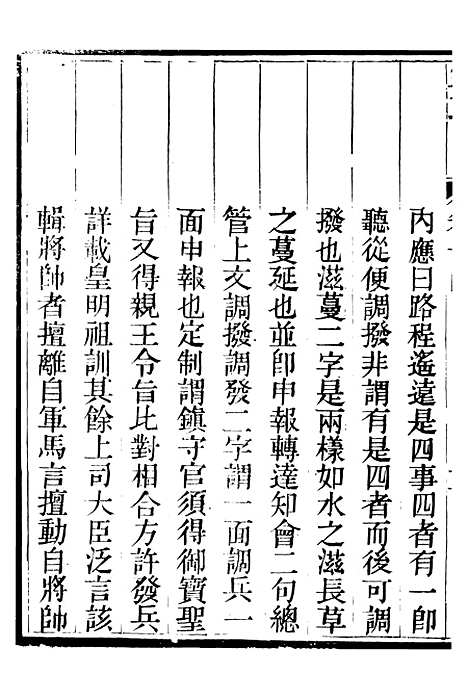 內應曰路程遙遠是四事四者有一卽
聽從便調撥非謂有是四者而後可調
撥也滋蔓二字是兩樣如水之滋長草
之蔓延也並卽申報轉達知會二句總
管上文調撥調發二字謂一面調兵一
面申報也定制謂鎮守官須得御寶聖
旨又得親王令旨比對相合方許發兵
詳載皇明祖訓其餘上司大臣泛言該
輯將帥者擅離自軍馬言擅動自將帥